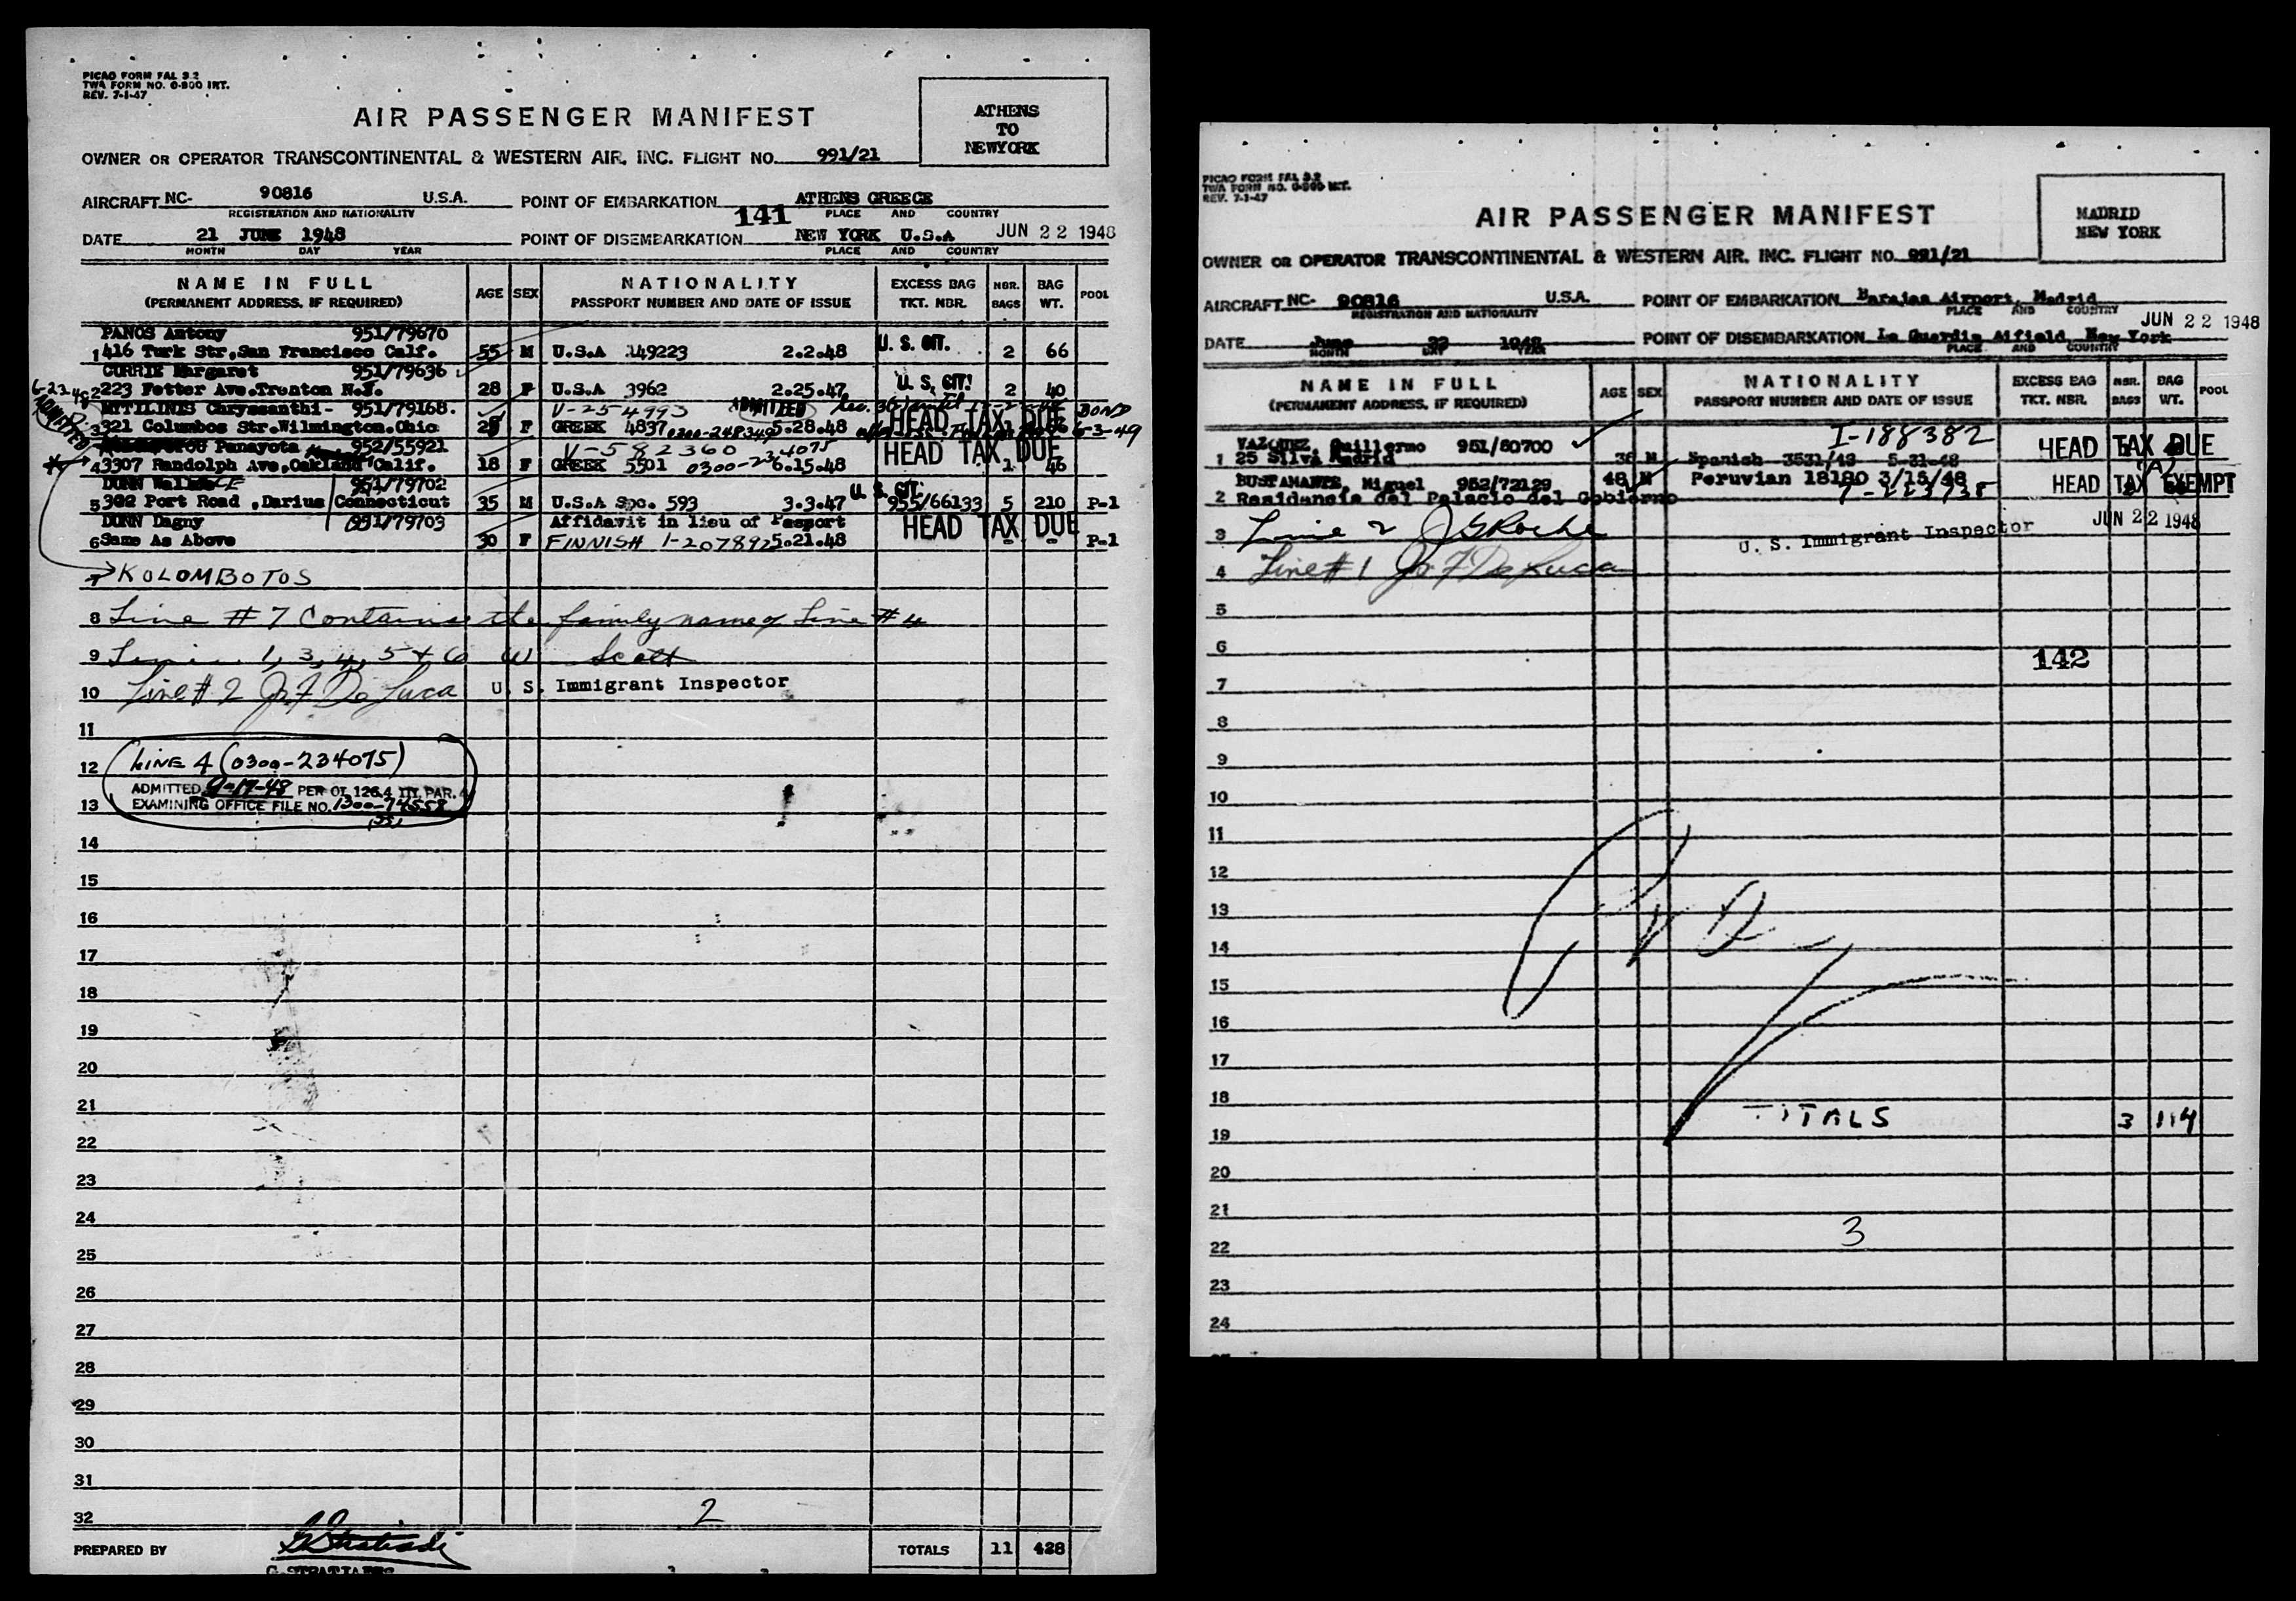 PICAO FORM FAL 3.2
TWA FORM NO. 0-800 INT.
REV. 7-1-47
AIR PASSENGER MANIFEST
ATHENS
TO
NEWYORK
OWNER OR OPERATOR TRANSCONTINENTAL & WESTERN AIR, INC. FLIGHT NO. 991/21
AIRCRAFT NC- 90816 U.S.A. POINT OF EMBARKATION ATHENS GREECE
REGISTRATION AND NATIONALITY PLACE AND COUNTRY
141
DATE 21 JUNE 1948 POINT OF DISEMBARKATION NEW YORK U.S.A JUN 22 1948
MONTH DAY YEAR PLACE AND COUNTRY
NAME IN FULL
(PERMANENT ADDRESS, IF REQUIRED)
AGE SEX
NATIONALITY
PASSPORT NUMBER AND DATE OF ISSUE
EXCESS BAG
TKT. NBR.
NBR.
BAGS
BAG
WT.
POOL
PANOS Antony 951/79670
1 416 Turk Str,San Francisco Calf. 55 M U.S.A 149223 2.2.48 U.S. CIT. 2 66
CURRIE Margaret 951/79636
2 223 Fetter Ave.Trenton N.J. 28 F U.S.A 3962 2.25.47 U.S. CIT. 2 40
MITILINIS Chryssanthi- 951/79168. V-254993 ADMITTED BOND
3 321 Columbos Str.Wilmington.Ohio F GREEK 4837 0300-248349 5.28.48 HEAD TAX DUE 6-3-49
ADMITTED
Panayota 952/55921 V-582360 0300-234075
4 3307 Randolph Ave.Oakland Calif. 18 F GREEK 5501 6.15.48 HEAD TAX DUE 1 46
DUNN 951/79702
5 302 Port Road ,Darius Connecticut 35 M U.S.A Spc. 593 3.3.47 U.S. CIT. 955/66133 5 210 P-1
DUNN Dagny 951/79703 Affidavit in lieu of Passport
6 Same As Above 30 F FINNISH I-207892 5.21.48 HEAD TAX DUE - - P-1
7 KOLOMBOTOS
8 Line # 7 Contains the family name of Line # 4
9 Line 1, 3, 4, 5 + 6 W Scott
10 Line # 2 Jo. F De Luca U. S. Immigrant Inspector
11
12 LINE 4 (0300-234075)
ADMITTED 9-17-48 PER OI 126.4 III, PAR. 4
13 EXAMINING OFFICE FILE NO. 1300-74558
14
15
16
17
18
19
20
21
22
23
24
25
26
27
28
29
30
31
32
2
PREPARED BY TOTALS 11 428
G.STRATIADES
PICAO FORM FAL 3.2
TWA FORM NO. 0-800 INT.
REV. 7-1-47
AIR PASSENGER MANIFEST
MADRID
NEW YORK
OWNER OR OPERATOR TRANSCONTINENTAL & WESTERN AIR, INC. FLIGHT NO. 991/21
AIRCRAFT NC- 90816 U.S.A. POINT OF EMBARKATION Barajas Airport, Madrid
REGISTRATION AND NATIONALITY PLACE AND COUNTRY
JUN 22 1948
DATE June 22 1948 POINT OF DISEMBARKATION La Guardia Aifield, New York
MONTH DAY YEAR PLACE AND COUNTRY
NAME IN FULL
(PERMANENT ADDRESS, IF REQUIRED)
AGE SEX
NATIONALITY
PASSPORT NUMBER AND DATE OF ISSUE
EXCESS BAG
TKT. NBR.
NBR.
BAGS
BAG
WT.
POOL
VAZQUEZ, Guillermo 951/80700 I-188382 HEAD TAX DUE
1 25 Silva Madrid 36 M Spanish 3531/43 5-21-48
BUSTAMANTE, Miguel 952/72129 48 M Peruvian 18180 3/15/48 HEAD TAX EXEMPT
2 Residencia del Palacio del Gobierno
3 Line 2 J G Roche U. S. Immigrant Inspector JUN 22 1948
4 Line # 1 Jo. F De Luca
5
6
142
7
8
9
10
11
12
13
14
15
16
17
18
TOTALS 3 114
19
20
21
3
22
23
24